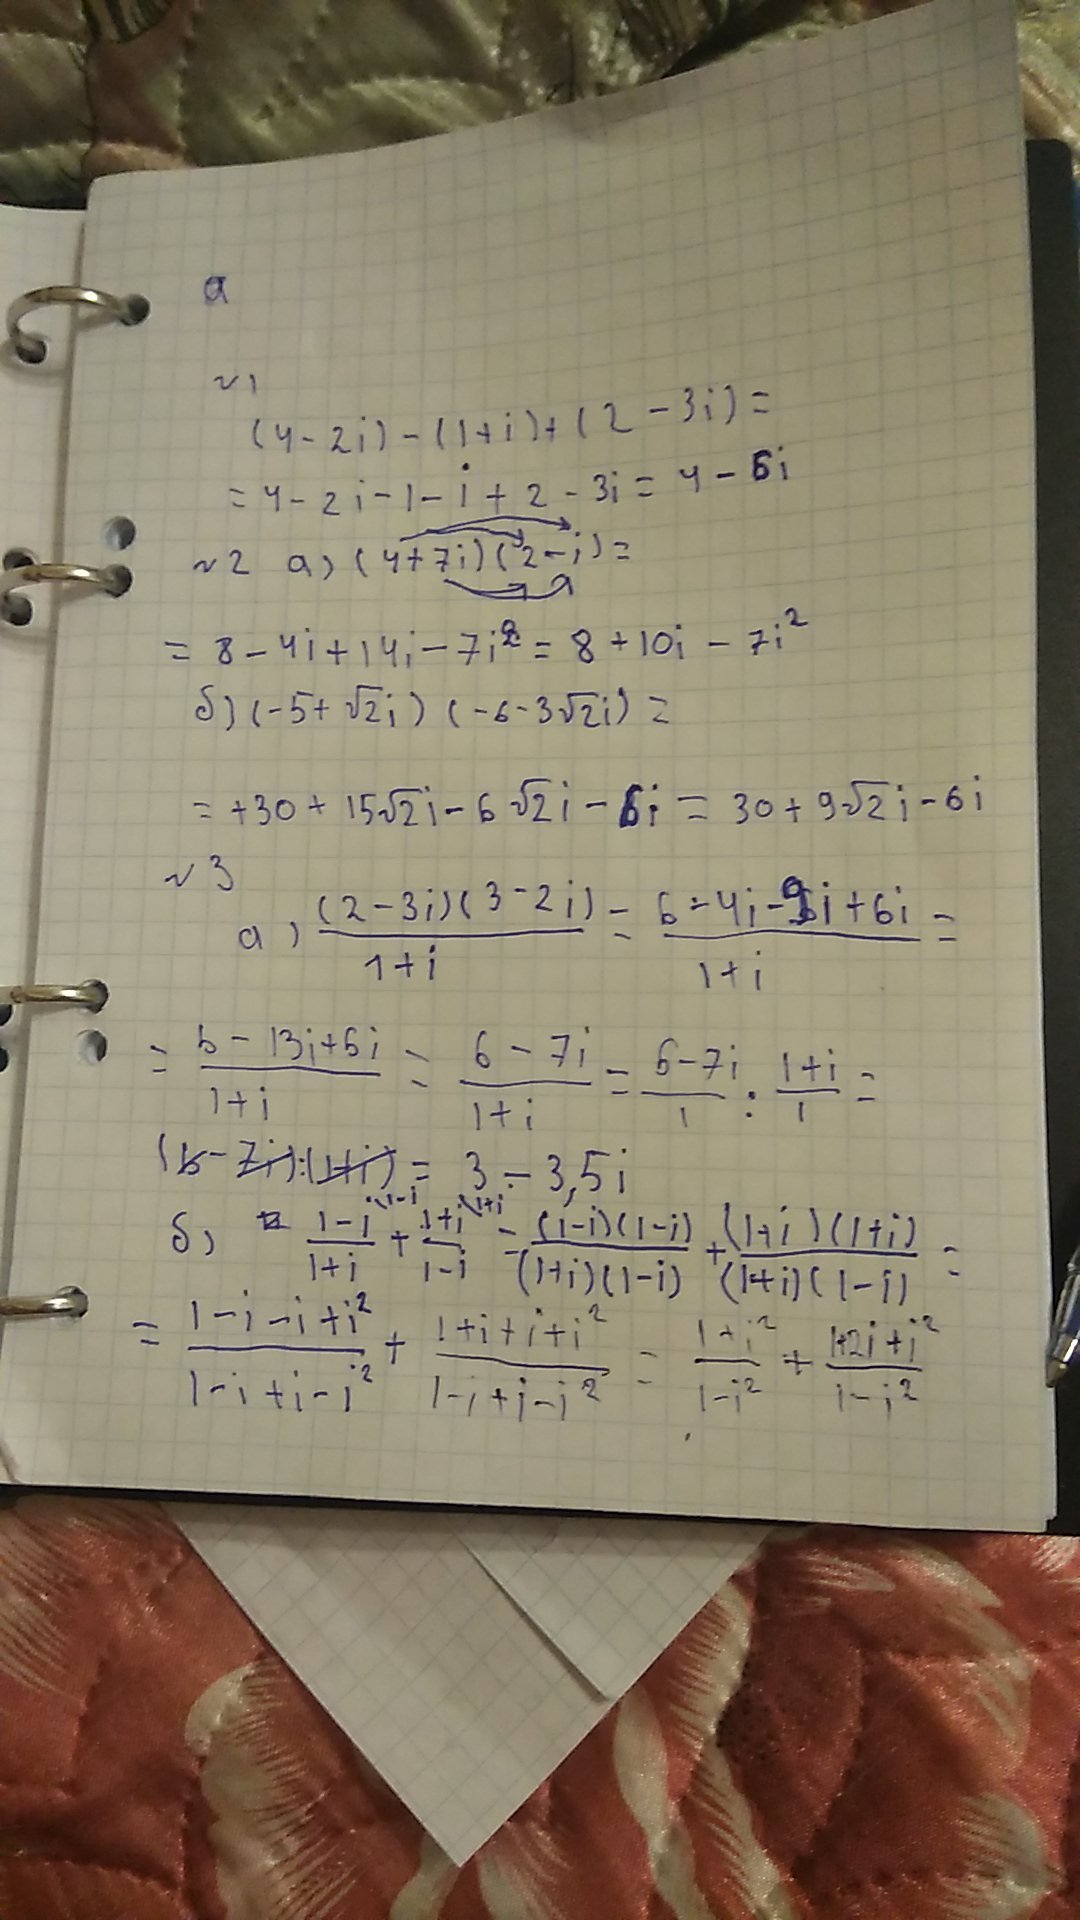 а
№1
(4-2i)-(1+i)+(2-3i)=
=4-2i-1-i+2-3i=4-6i
№2 а) (4+7i)(2-i)=
=8-4i+14i-7i²=8+10i-7i²
б) (-5+√2i)(-6-3√2i)=
=+30+15√2i-6√2i-6i=30+9√2i-6i
№3
а) (2-3i)(3-2i)/1+i = 6-4i-9i+6i/1+i =
= 6-13i+6i/1+i = 6-7i/1+i = 6-7i/1 : 1+i/1 =
(6-7i):(1+i) = 3-3,5i
б) 1-i/1+i \1-i + 1+i/1-i \1+i = (1-i)(1-i)/(1+i)(1-i) + (1+i)(1+i)/(1+i)(1-i) =
= 1-i-i+i²/1-i+i-i² + 1+i+i+i²/1-i+i-i² = 1+i²/1-i² + 1+2i+i²/1-i²